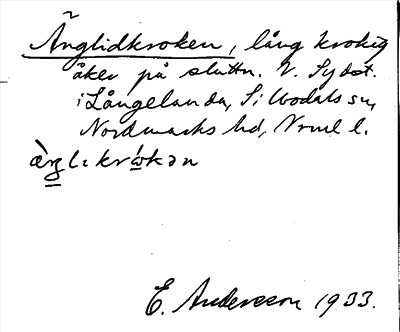 Änglidkroken, lång krokig
åker på sluttn. V. Sydöst.
i Långelanda, Sillbodals sn,
Nordmarks hd, Vrml l.
E. Andersson 1933.